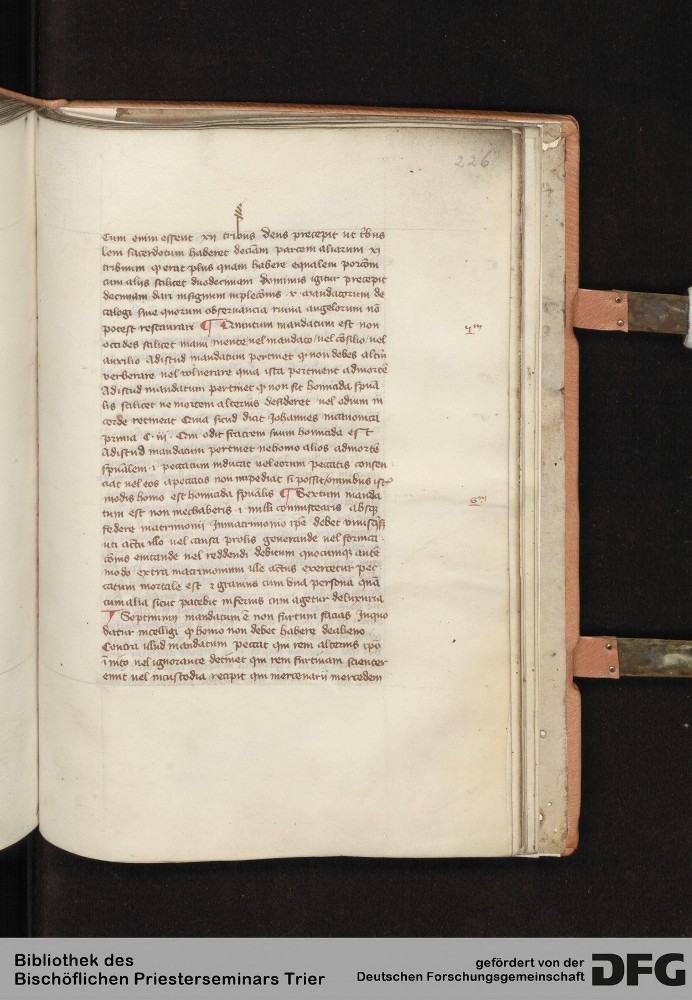 226
Cum enim essent xii tribus deus precepit ut tribus
leui sacerdotum haberet decimam partem aliarum xi
tribuum quod erat plus quam habere equalem porcionem
cum aliis scilicet duodecimam dominus igitur precepit
decimam dari in signum inplecionis x mandatorum de
calogi sine quorum obseruancia ruina angelorum non
potest restaurari ¶ Quintum mandatum est non
occides scilicet manu mente uel mandato uel consilio uel
auxilio Ad istud mandatum pertinet quod non debes alium
verberare uel vulnerare quia ista pertinent ad mortem
Ad istud mandatum pertinet quod non sit homicida spiritua
lis scilicet ne mortem alterius desideret uel odium in
corde retineat Quia sicud dicit Johannes in canonica
prima C. iii. Qui odit fratrem suum homicida est
Ad istud mandatum pertinet ne homo alios ad mortem
spiritualem i peccatum inducat uel eorum peccatis consen
ciat uel eos a peccatis non inpediat si possit omnibus istis
modis homo est homicida spiritualis ¶ Sextum manda
tum est non mechaberis i nulli conmiscearis absque
federe matrimonii In matrimonio ipse debet vnusquisque
uti actu illo uel causa prolis generande uel fornica
cionis euitande uel reddendi debitum quocumque autem
modo extra matrimonium ille actus exercetur pec
catum mortale est et grauius cum vna persona quam
cum alia sicut patebit inferius cum agetur de luxuria
¶ Septimum mandatum est non furtum facias In quo
datur intelligi quod homo non debet habere de alieno
Contra illud mandatum peccat qui rem alterius ipso
inuito uel ignorante detinet qui rem furtiuam scienter
emit uel in custodia recipit qui mercenarii mercedem
5m
6m
Bibliothek des
Bischöflichen Priesterseminars Trier
gefördert von der
Deutschen Forschungsgemeinschaft
DFG